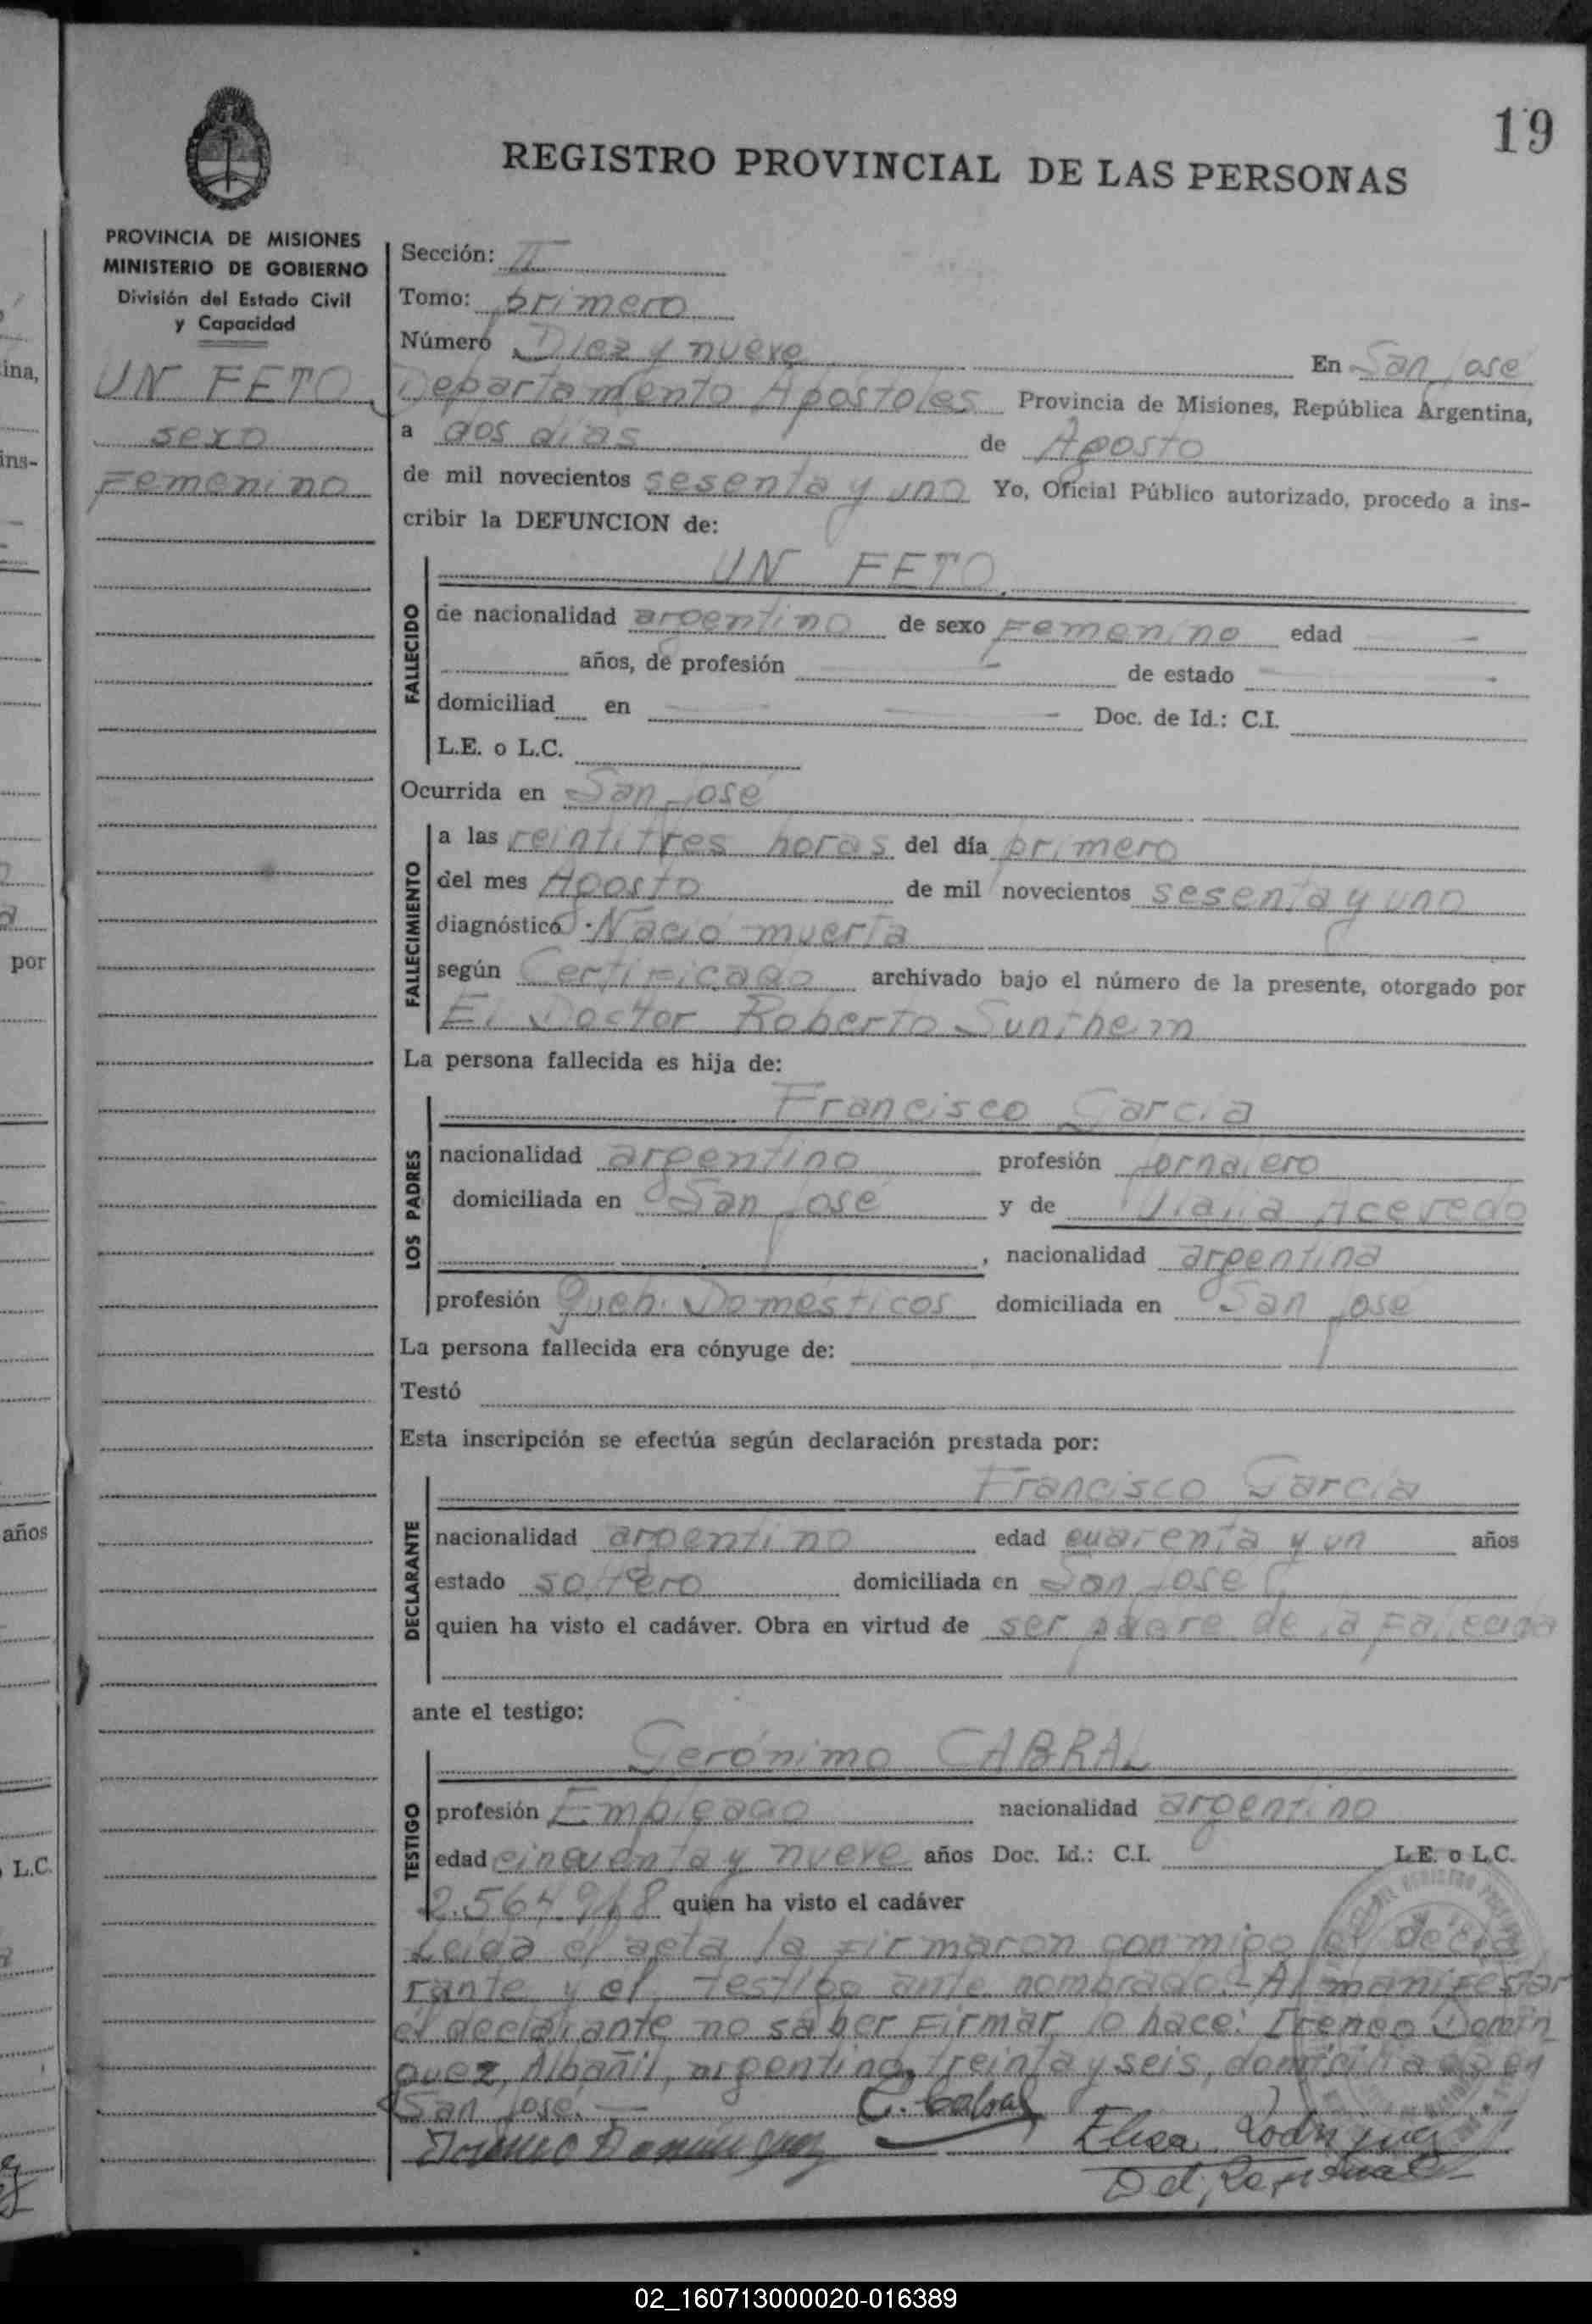 19
REGISTRO PROVINCIAL DE LAS PERSONAS
PROVINCIA DE MISIONES
MINISTERIO DE GOBIERNO
División del Estado Civil
y Capacidad
UN FETO
sexo
Femenino
Sección: II
Tomo: primero
Número Diez y nueve En San José
Departamento Apóstoles Provincia de Misiones, República Argentina,
a dos días de Agosto
de mil novecientos sesenta y uno Yo, Oficial Público autorizado, procedo a ins-
cribir la DEFUNCION de:
UN FETO
FALLECIDO
de nacionalidad argentino de sexo Femenino edad -
años, de profesión - de estado -
domiciliad en - Doc. de Id.: C.I.
L.E. o L.C.
Ocurrida en San José
FALLECIMIENTO
a las veintitres horas del día primero
del mes Agosto de mil novecientos sesenta y uno
diagnóstico Nació muerta
según Certificado archivado bajo el número de la presente, otorgado por
El Doctor Roberto Sunthein
La persona fallecida es hija de:
LOS PADRES
Francisco Garcia
nacionalidad argentino profesión Jornalero
domiciliada en San José y de Acevedo
, nacionalidad argentina
profesión Queh. Domésticos domiciliada en San José
La persona fallecida era cónyuge de:
Testó
Esta inscripción se efectúa según declaración prestada por:
DECLARANTE
Francisco García
nacionalidad argentino edad cuarenta y un años
estado soltero domiciliada en San José
quien ha visto el cadáver. Obra en virtud de ser padre de la Fallecida
ante el testigo:
TESTIGO
Gerónimo CABRAL
profesión Empleado nacionalidad argentino
edad cincuenta y nueve años Doc. Id.: C.I. L.E. o L.C.
2.564.918 quien ha visto el cadáver
Leída el acta la Firmaron conmigo el decla
rante y el testigo ante nombrado.- Al manifestar
el declarante no saber Firmar lo hace: Ireneo Domin
guez, Albañil, argentino, treinta y seis, domiciliado en
San José.-
G. Cabral
Ireneo Dominguez
Elisa Rodriguez
Del.
ina,
ins-
por
años
L.C.
02_160713000020-016389